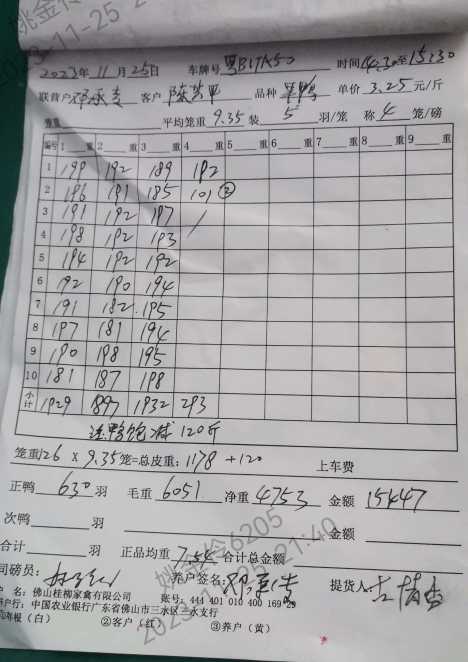 2023年11月25日 车牌号 粤B17A50 时间14:30至15:30
联营户 客户 陈 甲 品种 单价 3.25 元/斤
数量 平均笼重 9.35 装 5 羽/笼 称 4 笼/磅
编号 1 2 3 4 5 6 7 8 9
1 199 192 189 192
2 196 191 185 101 ③
3 191 192 197 /
4 198 192 193
5 194 192 192
6 192 190 194
7 191 182 195
8 197 181 194
9 190 198 195
10 181 187 198
小计 1929 1897 1932 293
注鸭饱减120斤
笼重126 X 9.35笼=总皮重: 1178 +120 上车费
正鸭 630 羽 毛重 6051 净重 4753 金额 15447
次鸭 羽 金额
合计 羽 正品均重 7.54 合计总金额
司磅员: 养户签名: 提货人:
户 名: 佛山桂柳家禽有限公司 账号: 444 401 010 400 169 29
开户行: 中国农业银行广东省佛山市三水区三水支行
①存根（白） ②客户（红） ③养户（黄）
姚金伶6205
2023-11-25 21:40